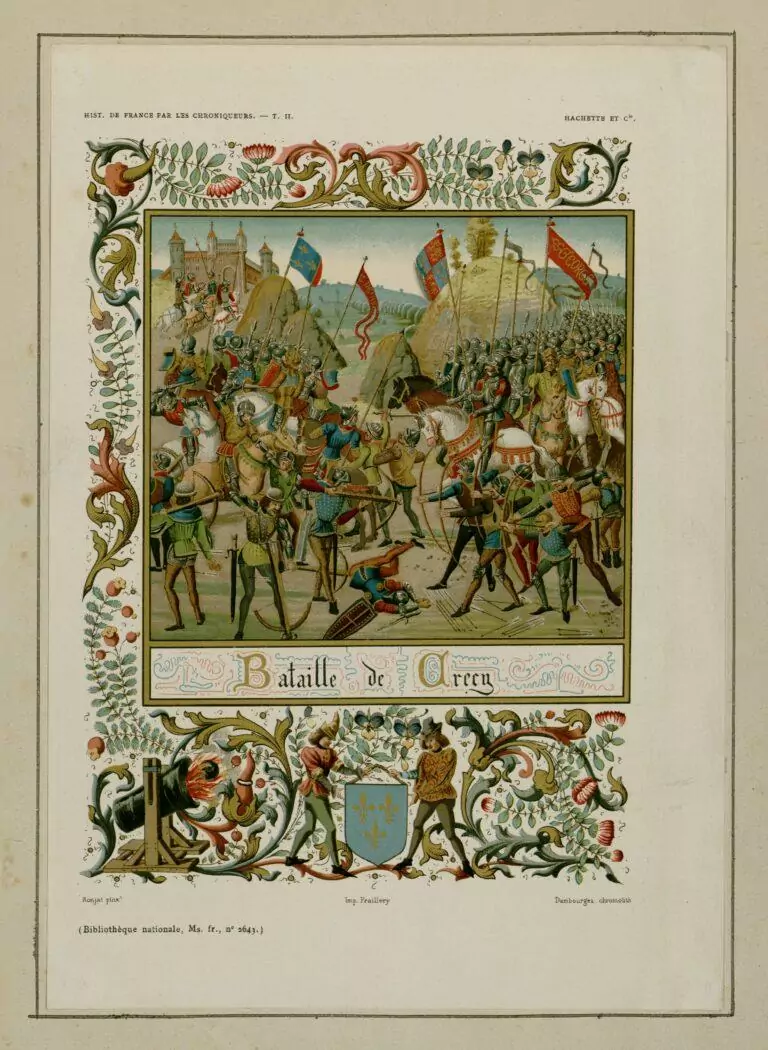 HIST. DE FRANCE PAR LES CHRONIQUEURS. — T. II.
HACHETTE ET Cie.
Bataille de Crecy
Ronjat pinxt
Imp. Fraillery
Dambourgez. chromolith
(Bibliothèque nationale, Ms. fr., no 2643.)